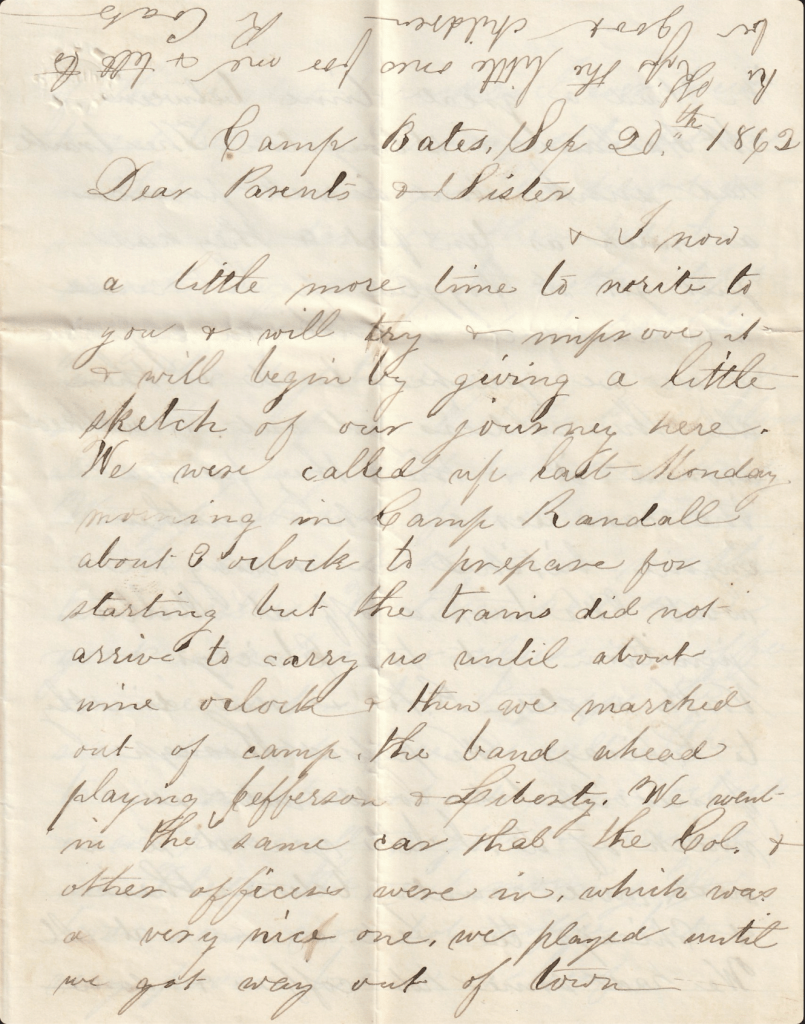 Kiss the little ones for me & tell to
be good children R Coats
Camp Bates, Sep 20th 1862
Dear Parents & Sister
& I now
a little more time to write to
you & will try & improve it
& will begin by giving a little
sketch of our journey here.
We were called up last Monday
morning in Camp Randall
about 3 oclock to prepare for
starting but the trains did not
arrive to carry us until about
nine oclock & then we marched
out of camp. the band ahead
playing Jefferson & Liberty. We went
in the same car that the Col. &
other officers were in, which was
a very nice one, we played until
we got way out of town